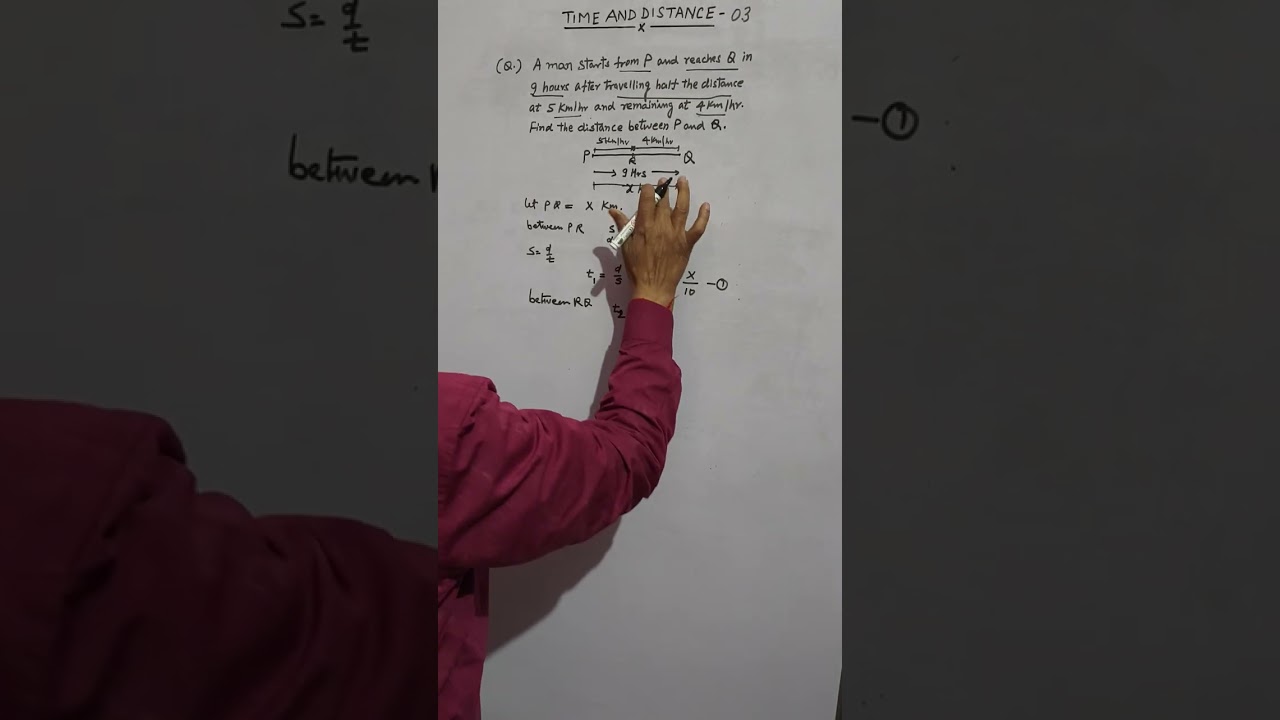 TIME AND DISTANCE - 03
x
(Q.) A man starts from P and reaches Q in
9 hours after travelling half the distance
at 5 Km/hr and remaining at 4 Km/hr.
Find the distance between P and Q.
5 Km/hr 4 Km/hr
P R Q
9 Hrs
x
let PQ = x Km.
between PR s
s = d/t
t1 = d/s x/10 - ①
between RQ t2
s = d/t
between
- ①